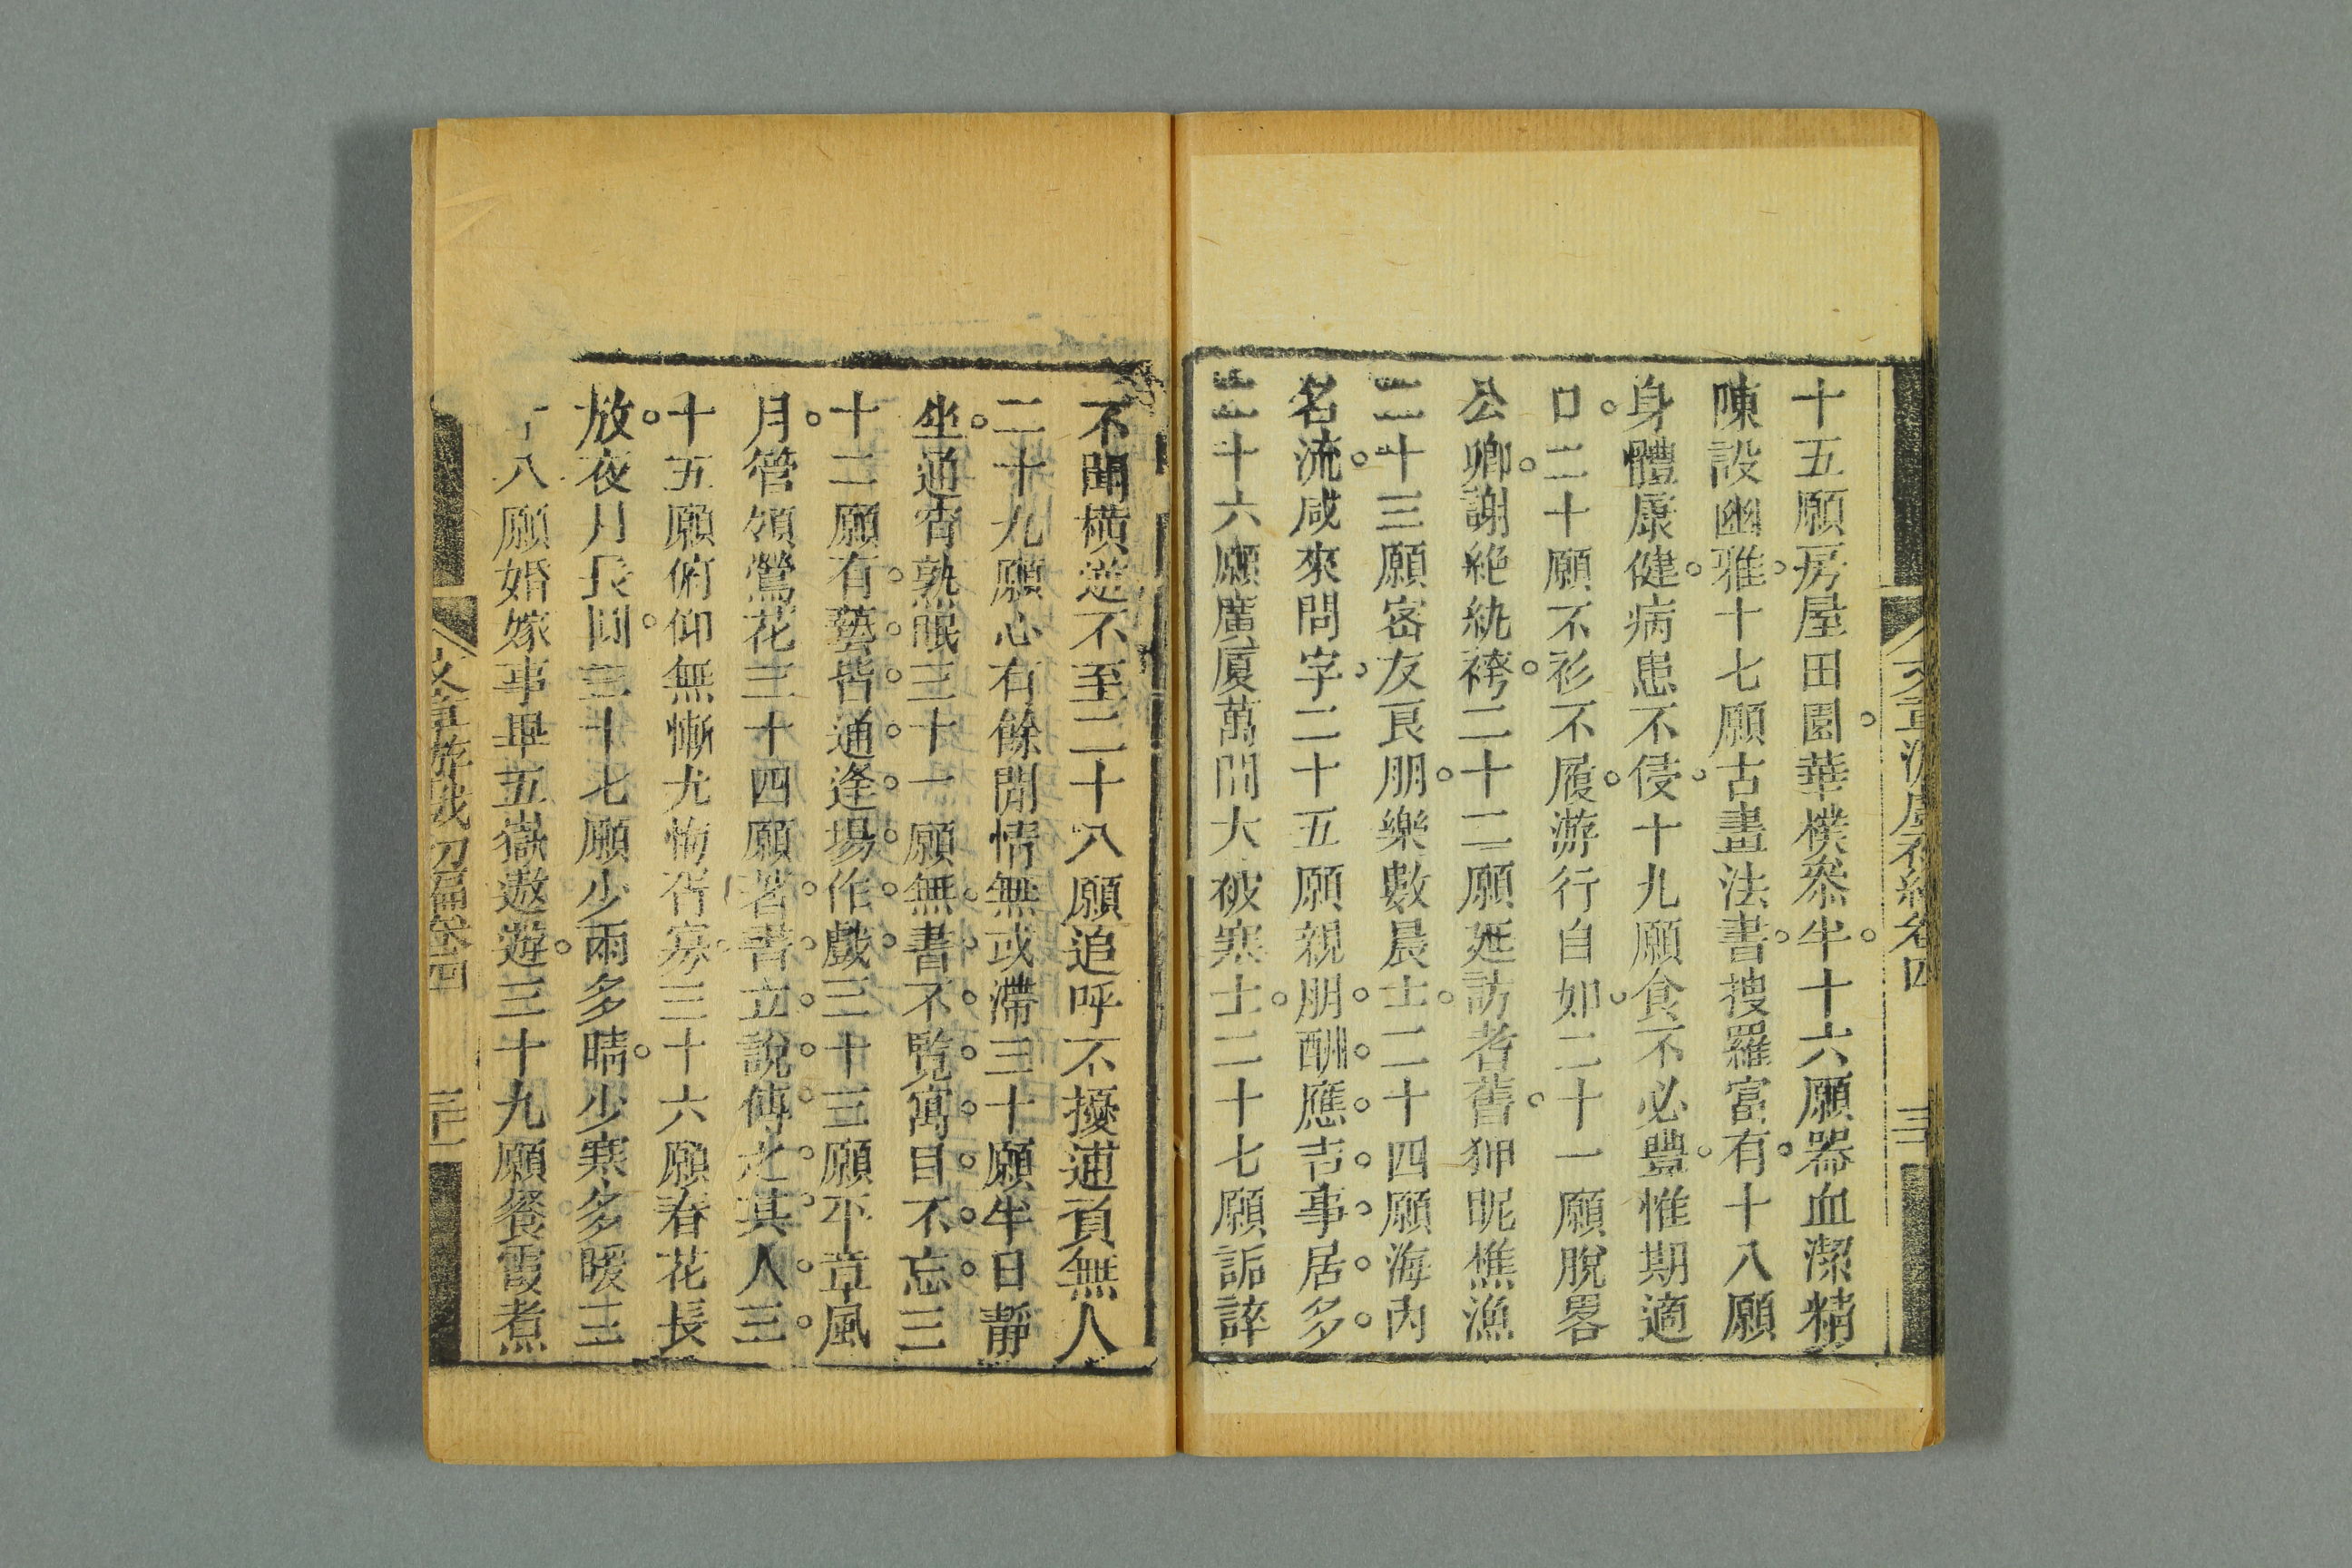 十五願房屋田園華樸叅半十六願器皿潔精
陳設幽雅十七願古畫法書搜羅富有十八願
身體康健病患不侵十九願食不必豐惟期適
口二十願不衫不履游行自如二十一願脫畧
公卿謝絶紈袴二十二願延訪耆舊狎昵樵漁
二十三願密友良朋樂數晨士二十四願海內
名流咸來問字二十五願親朋酬應吉事居多
二十六願廣厦萬間大被寒士二十七願詬誶
不聞橫逆不至二十八願追呼不擾逋負無人
二十九願心有餘閒情無或滯三十願半日靜
坐通宵熟眠三十一願無書不覽寓目不忘三
十二願有藝皆通逢場作戲三十三願平章風
月管領鶯花三十四願著書立說傳之其人三
十五願俯仰無慚尤悔胥寡三十六願春花長
放夜月長圓三十七願少雨多晴少寒多暖三
十八願婚嫁事畢五嶽遨遊三十九願餐霞煮
文章游戲初編卷四
三十一